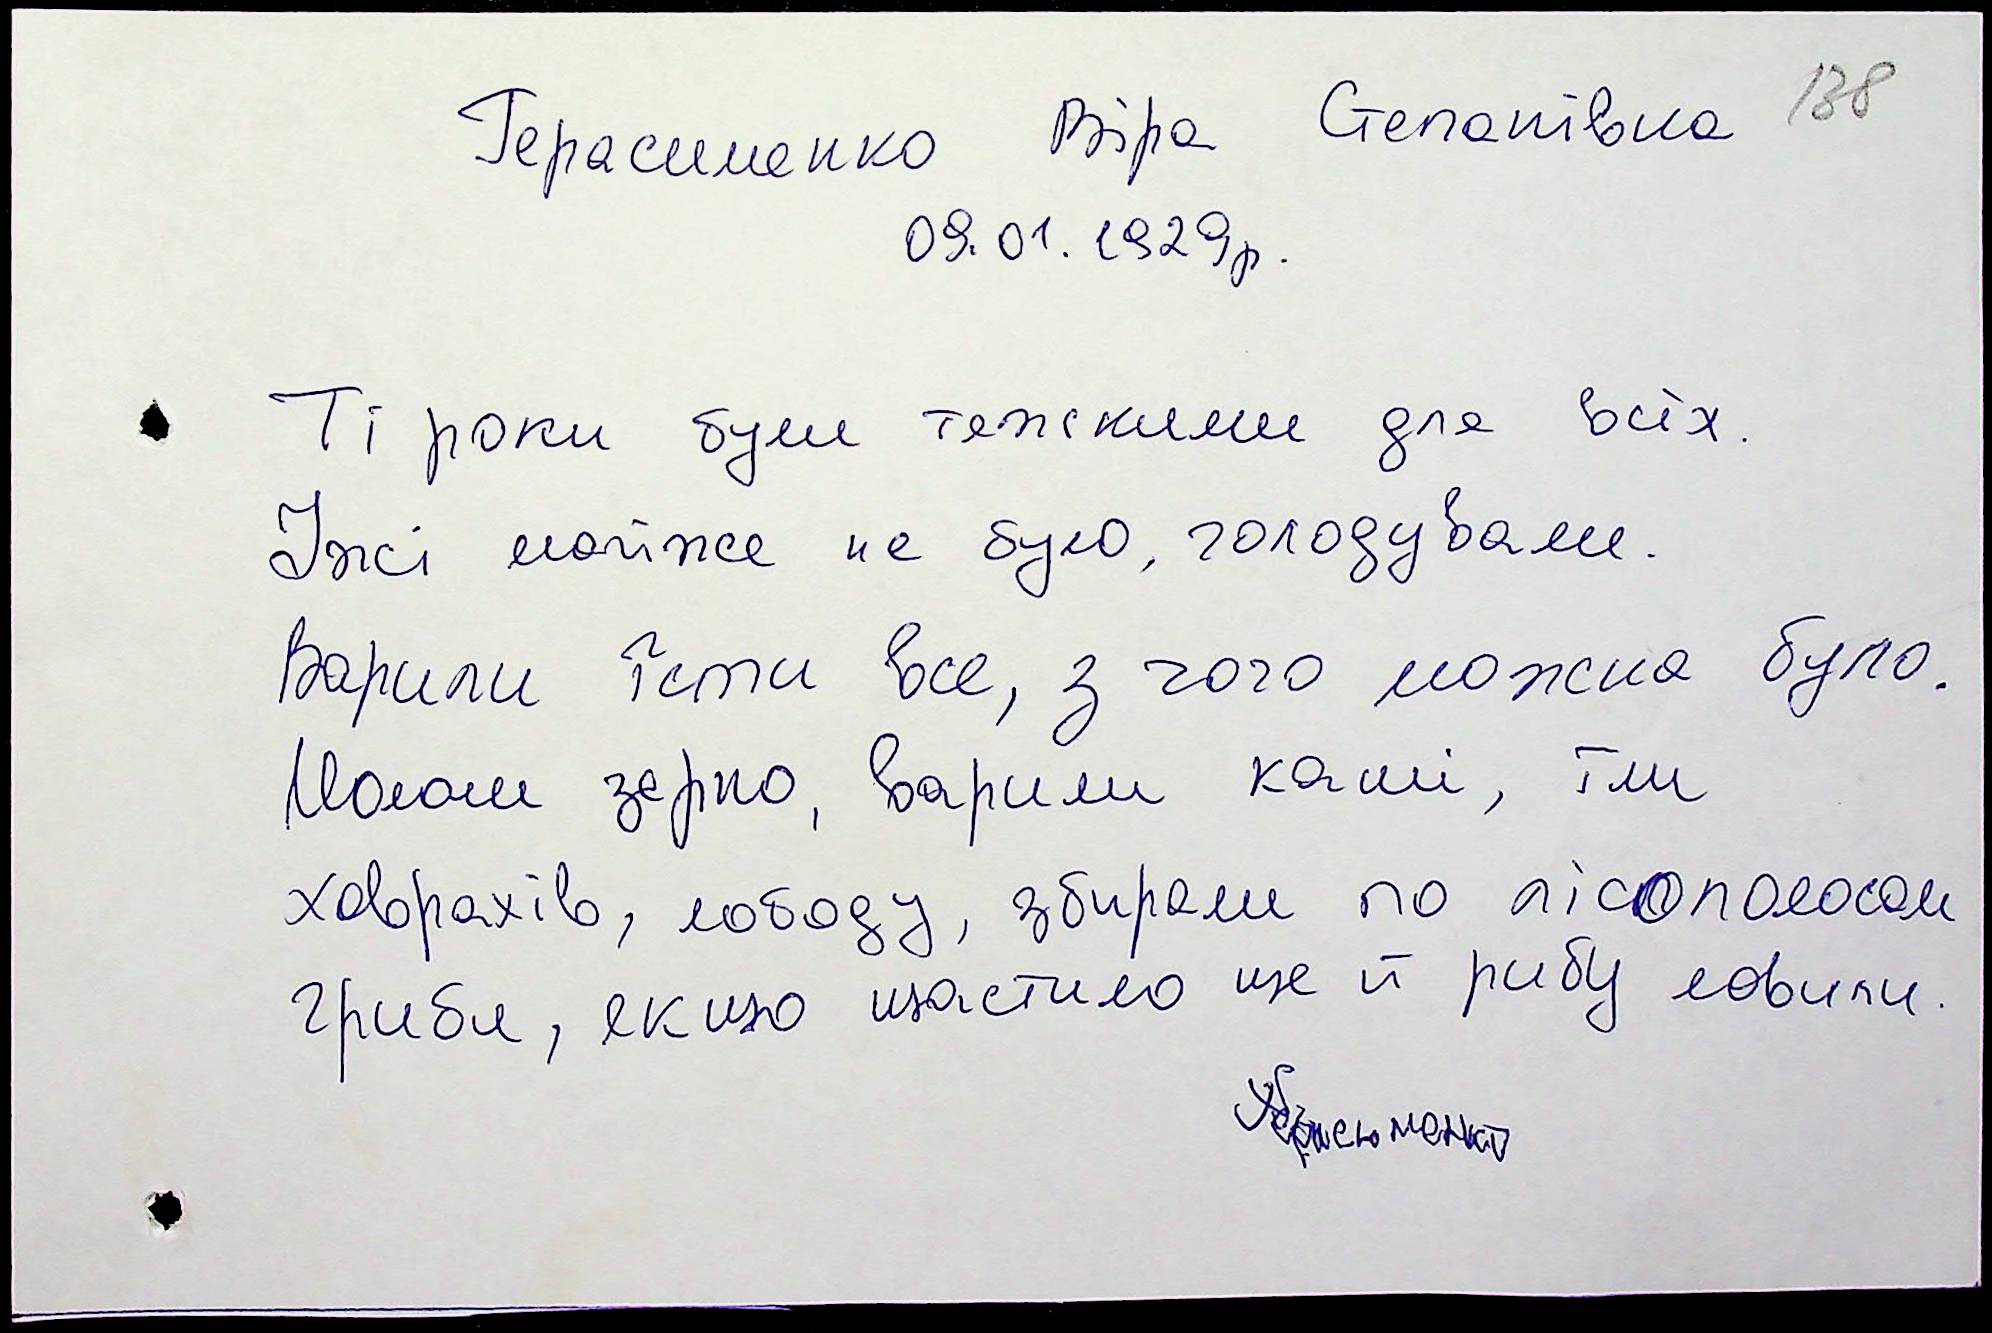 138
Герасименко Віра Степанівна
09.01.1929р.
Ті роки були тяжкими для всіх.
Їжі майже не було, голодували.
Варили їсти все, з чого можна було.
Мололи зерно, варили каші, їли
ховрахів, лободу, збирали по лісополосам
гриби, якщо щастило ще й рибу ловили.
Герасименко